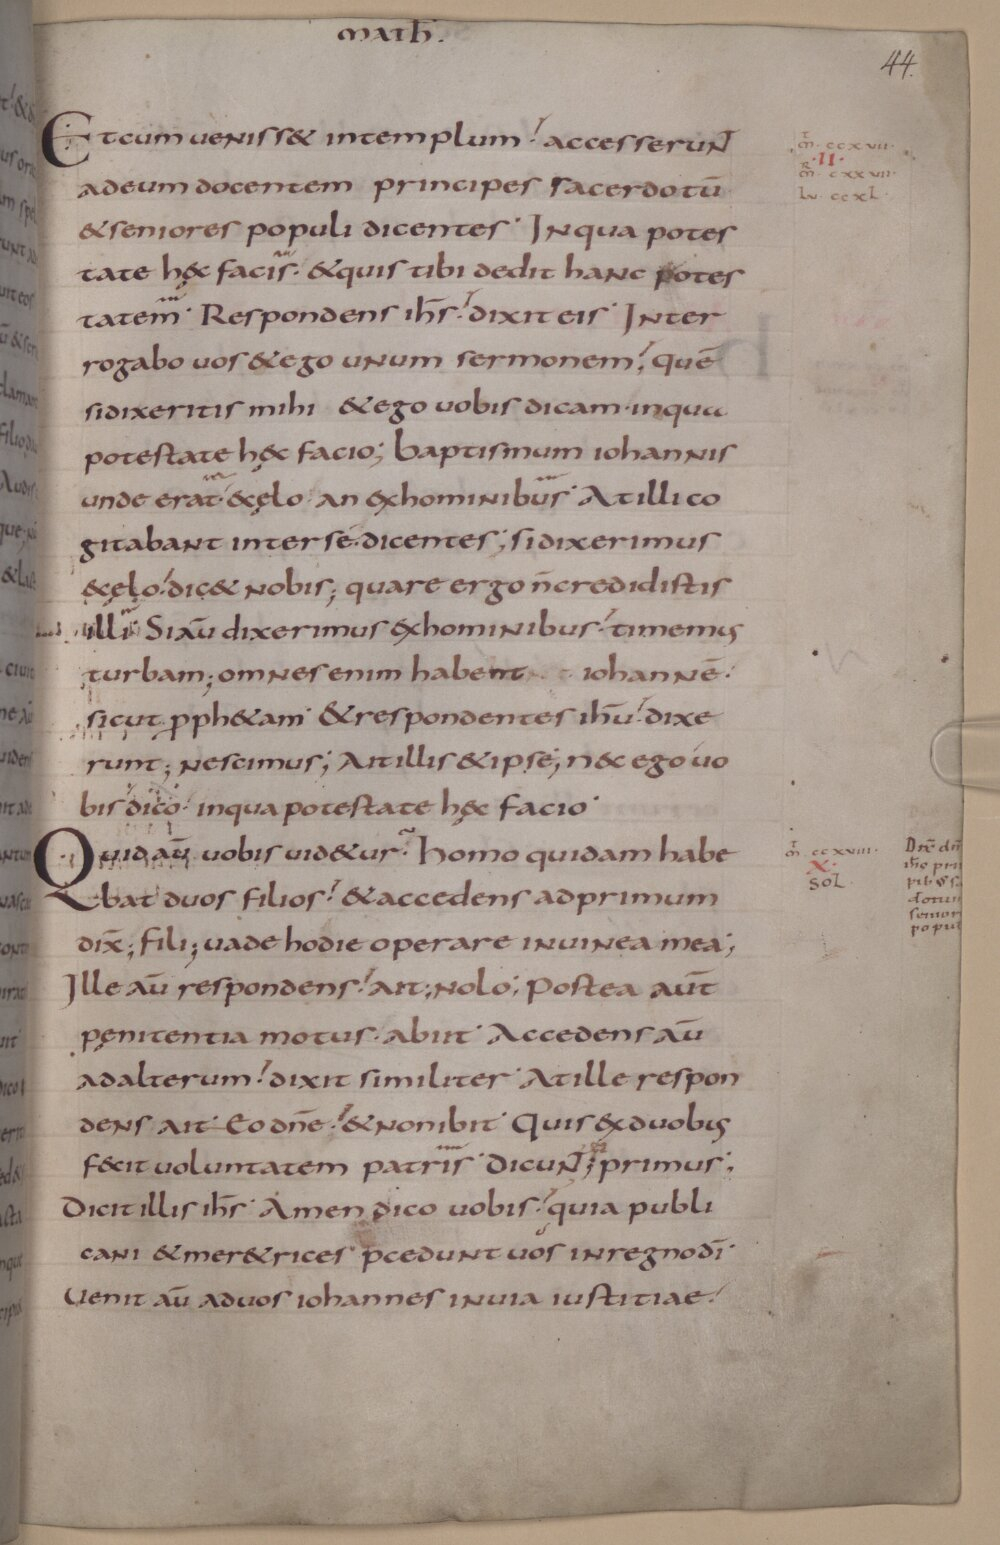 math̄.
44.
Et cum ueniss& in templum. accesserunt
ad eum docentem principes sacerdotū
& seniores populi dicentes. In qua potes
tate hęc facis. & quis tibi dedit hanc potes
tatem. Respondens ih̄s. dixit eis. Inter
rogabo uos & ego unum sermonem. quē
si dixeritis mihi & ego uobis dicam. in qua
potestate hęc facio; baptismum iohannis
unde erat. & cęlo. an ex hominibus. At illi co
gitabant inter se. dicentes; si dixerimus
& cęlo. dic& nobis; quare ergo n̄ credidistis
illi. Si aū dixerimus ex hominibus. timemus
turbam; omnes enim habent iohannē.
sicut p̄ph&am. & respondentes ih̄u. dixe
runt; nescimus; Ait illis & ipse; nec ego uo
bis dico. in qua potestate hęc facio.
Quid aū uobis uid&ur. Homo quidam habe
bat duos filios. & accedens ad primum
dix̄; fili; uade hodie operare in uinea mea;
Ille aū respondens. ait; nolo; Postea aūt
pęnitentia motus. abiit. Accedens aū
ad alterum. dixit similiter. At ille respon
dens ait. Eo dn̄e. & non ibit. Quis ex duobus
fecit uoluntatem patris. Dicunt; primus;
Dicit illis ih̄s. Amen dico uobis. quia publi
cani & mer&rices p̄cedunt uos in regno dī.
Uenit aū ad uos iohannes in uia iustitiae.
m̄. ccxvii.
.II.
m̄. cxxvii.
Lu. ccxl.
m̄. ccxviii.
X.
Sol.